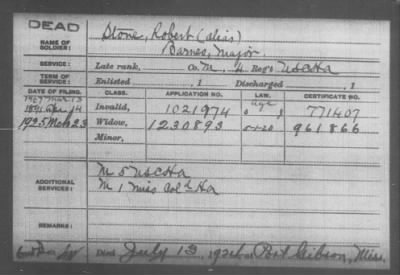 DEAD
NAME OF SOLDIER: Stone, Robert (alias)
Barnes, Major.
SERVICE: Late rank, Co. M, 4 Reg't USCHA
TERM OF SERVICE: Enlisted , 1 Discharged , 1
DATE OF FILING. CLASS. APPLICATION NO. LAW. CERTIFICATE NO.
1907 Mar 13 age
1891 Apr 14 Invalid, 1021974 771407
1925 Mch 23 Widow, 1230893 5-1-20 961866
Minor,
ADDITIONAL SERVICES: M 5 USCHA
M 1 Miss Col'd HA
REMARKS:
Died July 13, 1924, at Port Gibson, Miss.